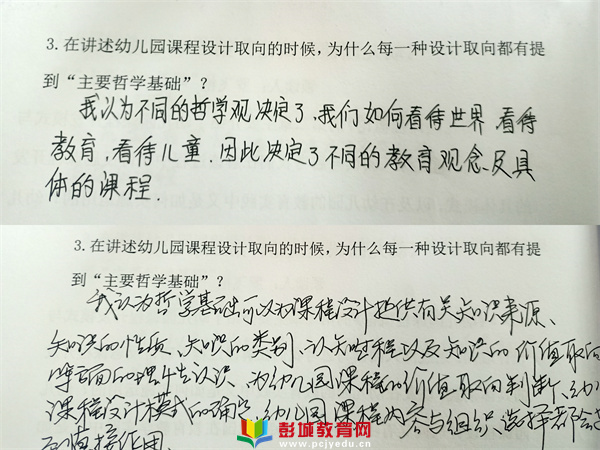 3. 在讲述幼儿园课程设计取向的时候，为什么每一种设计取向都有提
到“主要哲学基础”？
我认为不同的哲学观决定了，我们如何看待世界 看待
教育，看待儿童. 因此决定了不同的教育观念及具
体的课程.
3. 在讲述幼儿园课程设计取向的时候，为什么每一种设计取向都有提
到“主要哲学基础”？
我认为哲学基础可以为课程设计提供有关知识来源、
知识的性质、知识的类别、认知过程以及知识的价值取向
等方面的理性认识，为幼儿园课程的价值取向判断、幼儿
课程设计模式的确定、幼儿园课程内容与组织、选择都会
直接作用.
彭城教育网
www.pcjyedu.cn